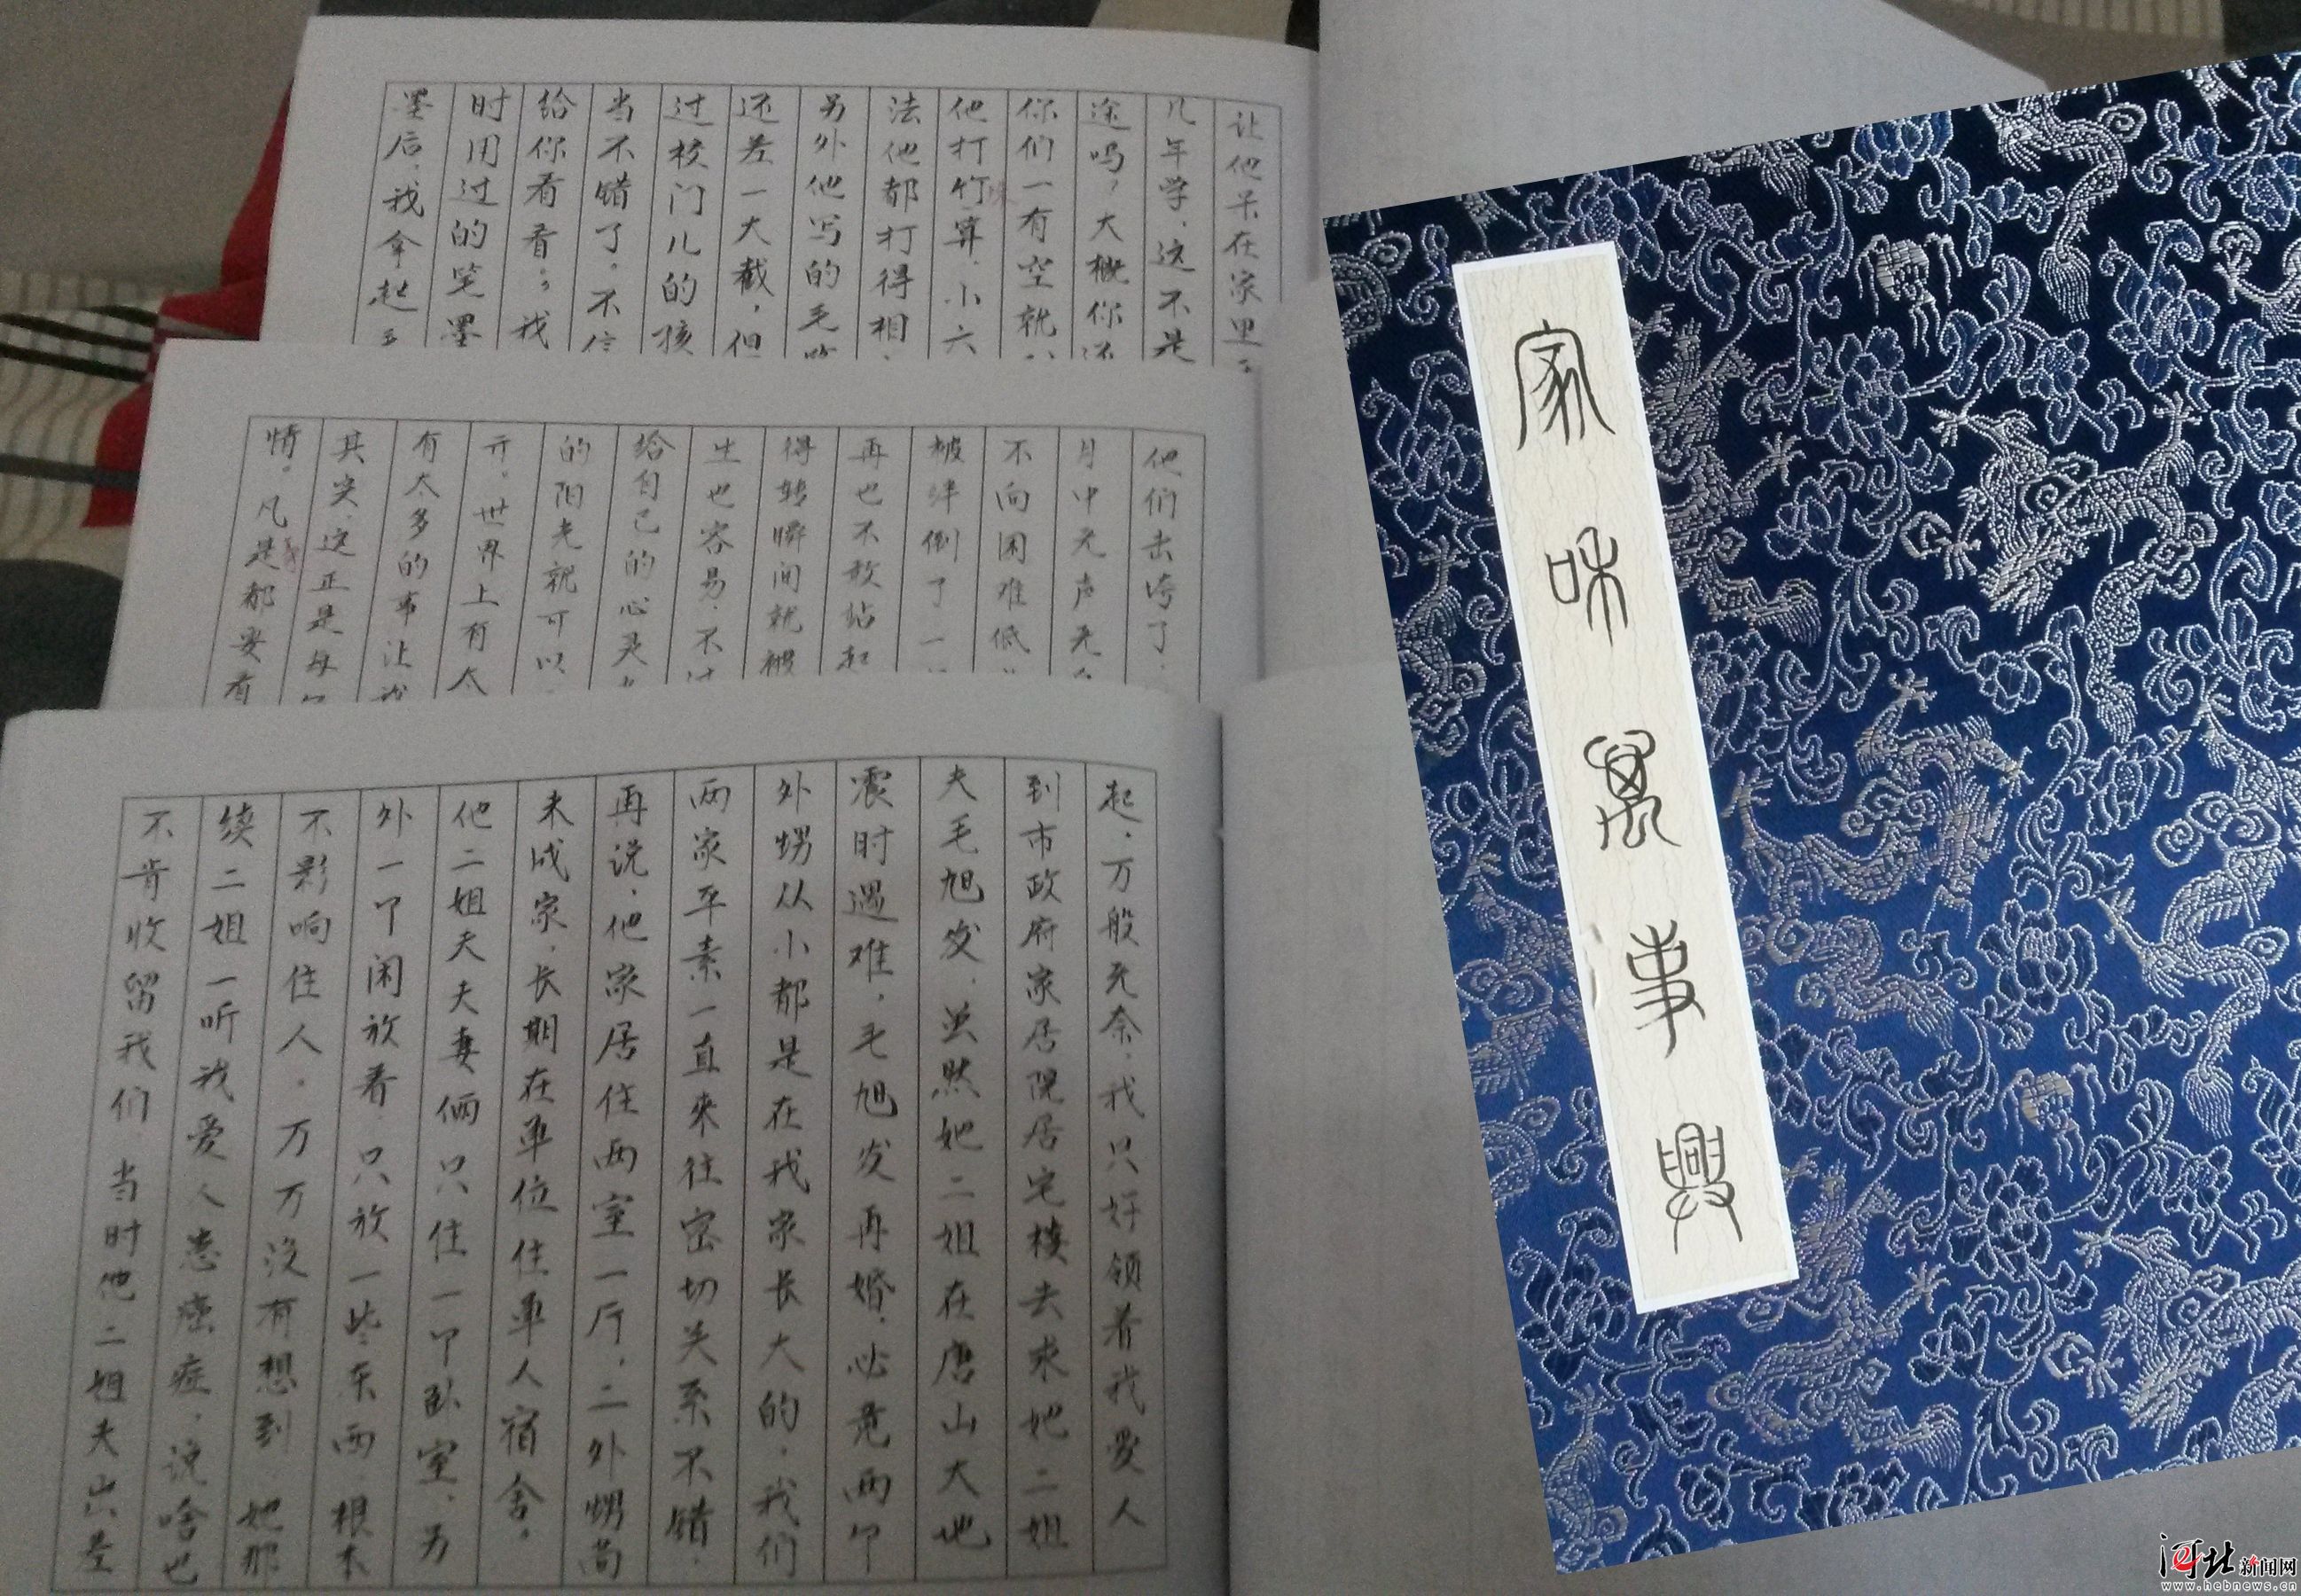 让他呆在家里
几年学，这不是
途吗？大概你还
你们一有空就
他打竹算，小六
法他都打得相
另外他写的毛
还差一大截，但
过校门儿的孩
当不错了。不信
给你看看；我
时用过的笔墨
墨后，我拿起
他们击垮了
月中无声无
不向困难低
被绊倒了一
再也不敢站起
得转瞬间就被
生也容易，不过
给自己的心灵
的阳光就可以
开。世界上有太
有太多的事让我
其实，这正是每
情。凡是都要有
起，万般无奈，我只好领着我爱人
到市政府家居院居宅楼去求她二姐
夫毛旭发，虽然她二姐在唐山大地
震时遇难，毛旭发再婚，必竟两个
外甥从小都是在我家长大的，我们
两家平素一直来往密切关系不错，
再说，他家居住两室一厅，二外甥尚
未成家，长期在单位住单人宿舍，
他二姐夫夫妻俩只住一个卧室，另
外一个闲放着，只放一些东西，根本
不影响住人。万万没有想到，她那
续二姐一听我爱人患癌症，说啥也
不肯收留我们，当时他二姐夫出差
家和万事兴
河北新闻网
www.hebnews.cn